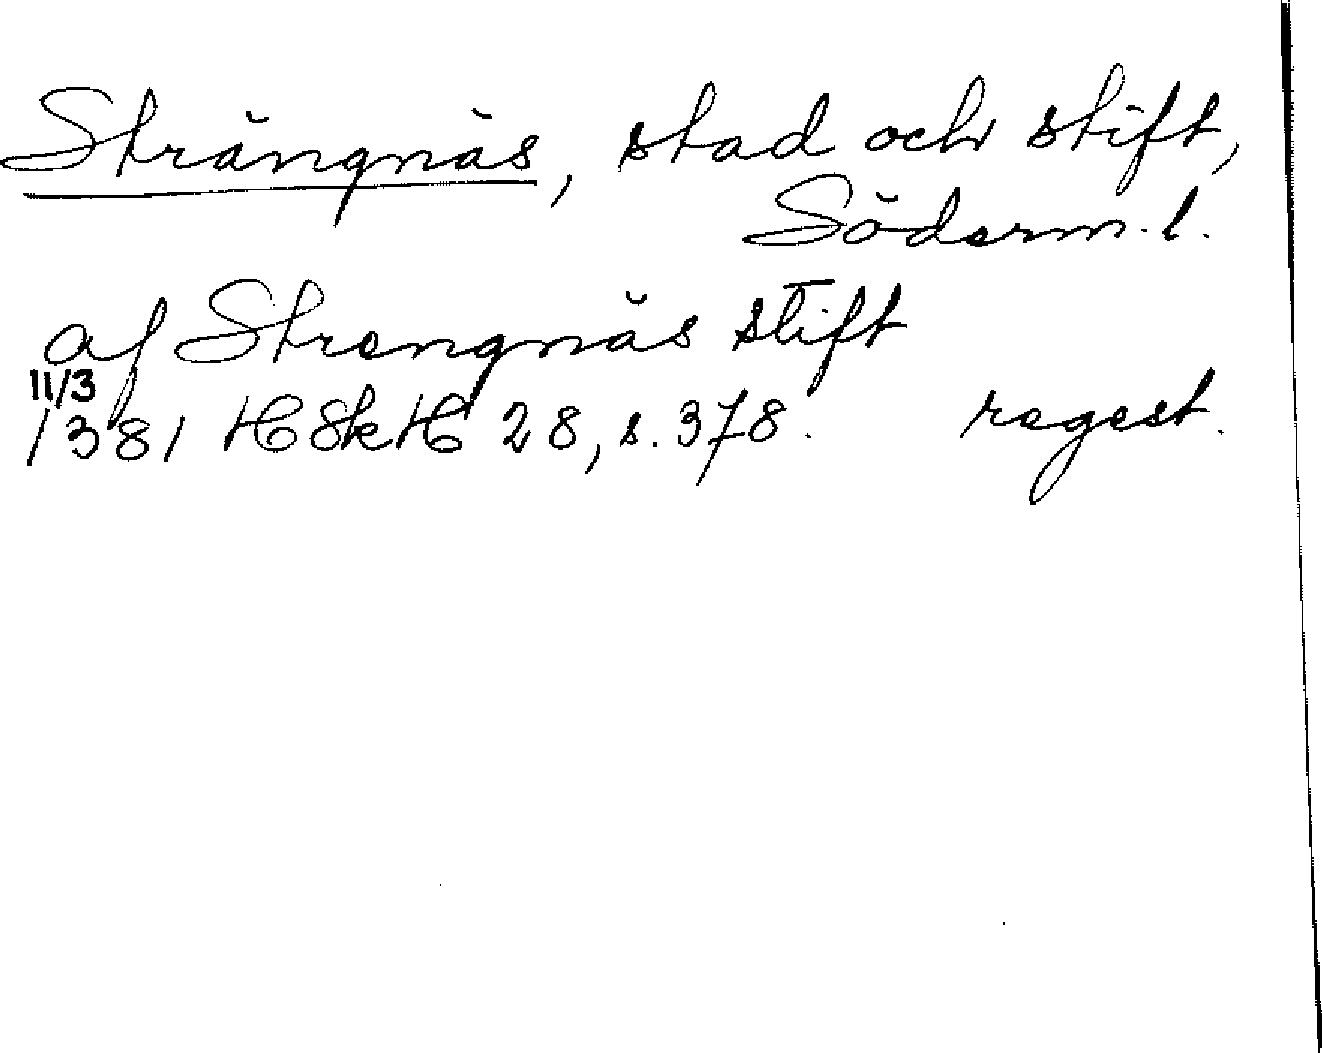 Strängnäs, stad och stift,
Söderm. l.
af Strengnäs stift
11/3
1381 HSkH 28, s. 378. regest.